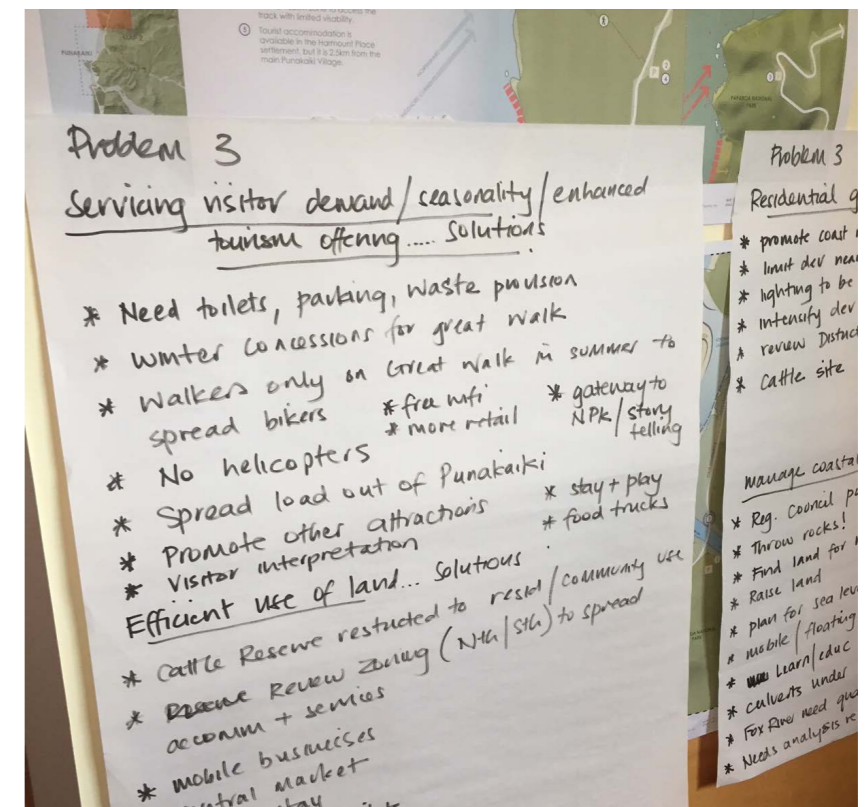 track with limited visibility.
5 Tourist accommodation is
available in the Hartmount Place
settlement, but it is 2.5km from the
main Punakaiki Village.
PUNAKAIKI
PAPAROA NATIONAL
PARK
Problem 3
Servicing visitor demand/seasonality/enhanced
tourism offering..... Solutions
* Need toilets, parking, waste provision
* Winter concessions for great walk
* Walkers only on Great Walk in summer to
spread bikers
* free wifi
* more retail
* gateway to
NPk/story
telling
* No helicopters
* Spread load out of Punakaiki
* Promote other attractions
* stay + play
* food trucks
* Visitor interpretation
Efficient use of land... Solutions
* Cattle Reserve restricted to resid/community use
* Review Zoning (Nth/Sth) to spread
accomm + services
* mobile businesses
market
Problem 3
Residential g
* promote coast
* limit dev near
* lighting to be
* intensify dev
* review District
* Cattle site
Manage coastal
* Reg. Council
* Throw rocks!
* Find land for
* Raise land
* plan for sea
* mobile/floating
* Learn/educ
* culverts under
* Fox River need
* Needs analysis re